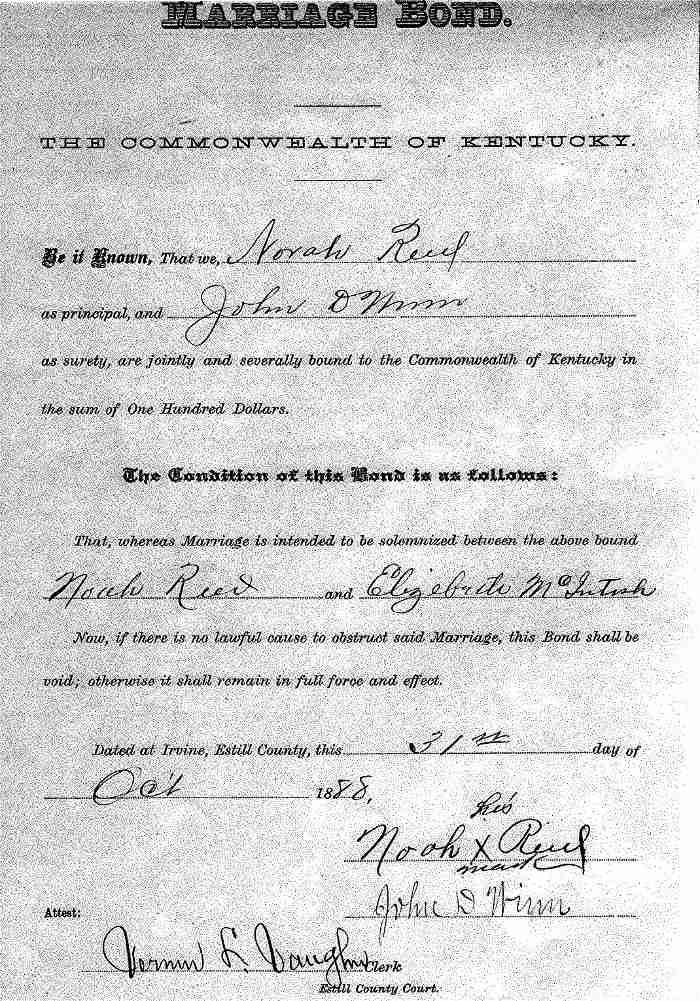 MARRIAGE BOND.
THE COMMONWEALTH OF KENTUCKY.
Be it Known, That we, Norah Reed
as principal, and John D Winn
as surety, are jointly and severally bound to the Commonwealth of Kentucky in
the sum of One Hundred Dollars.
The Condition of this Bond is as follows:
That, whereas Marriage is intended to be solemnized between the above bound
Noah Reed and Elizebeth McIntosh
Now, if there is no lawful cause to obstruct said Marriage, this Bond shall be
void; otherwise it shall remain in full force and effect.
Dated at Irvine, Estill County, this 31st day of
Oct 1888,
his
Noah X Reed
mark
John D Winn
Attest:
Vernon L. Vaughn Clerk
Estill County Court.